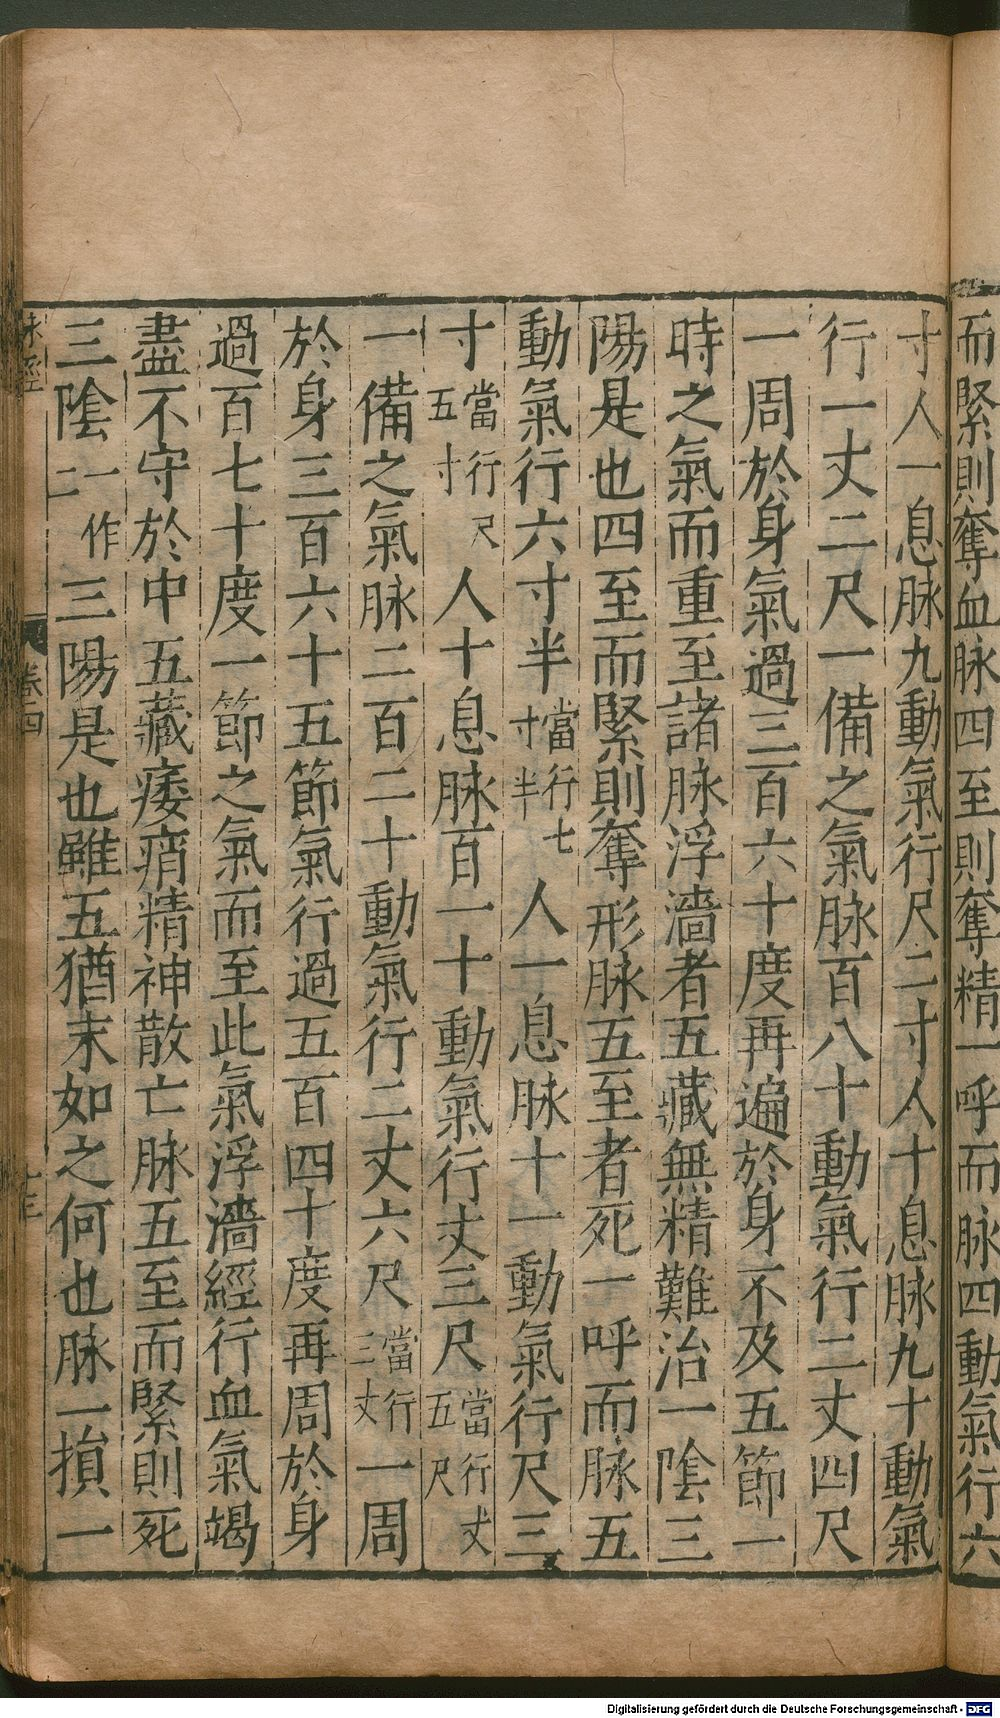 而緊則奪血脉四至則奪精一呼而脉四動氣行六
寸人一息脉九動氣行尺二寸人十息脉九十動氣
行一丈二尺一備之氣脉百八十動氣行二丈四尺
一周於身氣過三百六十度再遍於身不及五節一
時之氣而重至諸脉浮濇者五藏無精難治一陰三
陽是也四至而緊則奪形脉五至者死一呼而脉五
動氣行六寸半當行七寸半人一息脉十一動氣行尺三
寸當行尺五寸人十息脉百一十動氣行丈三尺當行丈五尺
一備之氣脉二百二十動氣行二丈六尺當行三丈一周
於身三百六十五節氣行過五百四十度再周於身
過百七十度一節之氣而至此氣浮濇經行血氣竭
盡不守於中五藏痿痟精神散亡脉五至而緊則死
三陰一作二三陽是也雖五猶末如之何也脉一損一
脉經
卷四
Digitalisierung gefördert durch die Deutsche Forschungsgemeinschaft - DFG